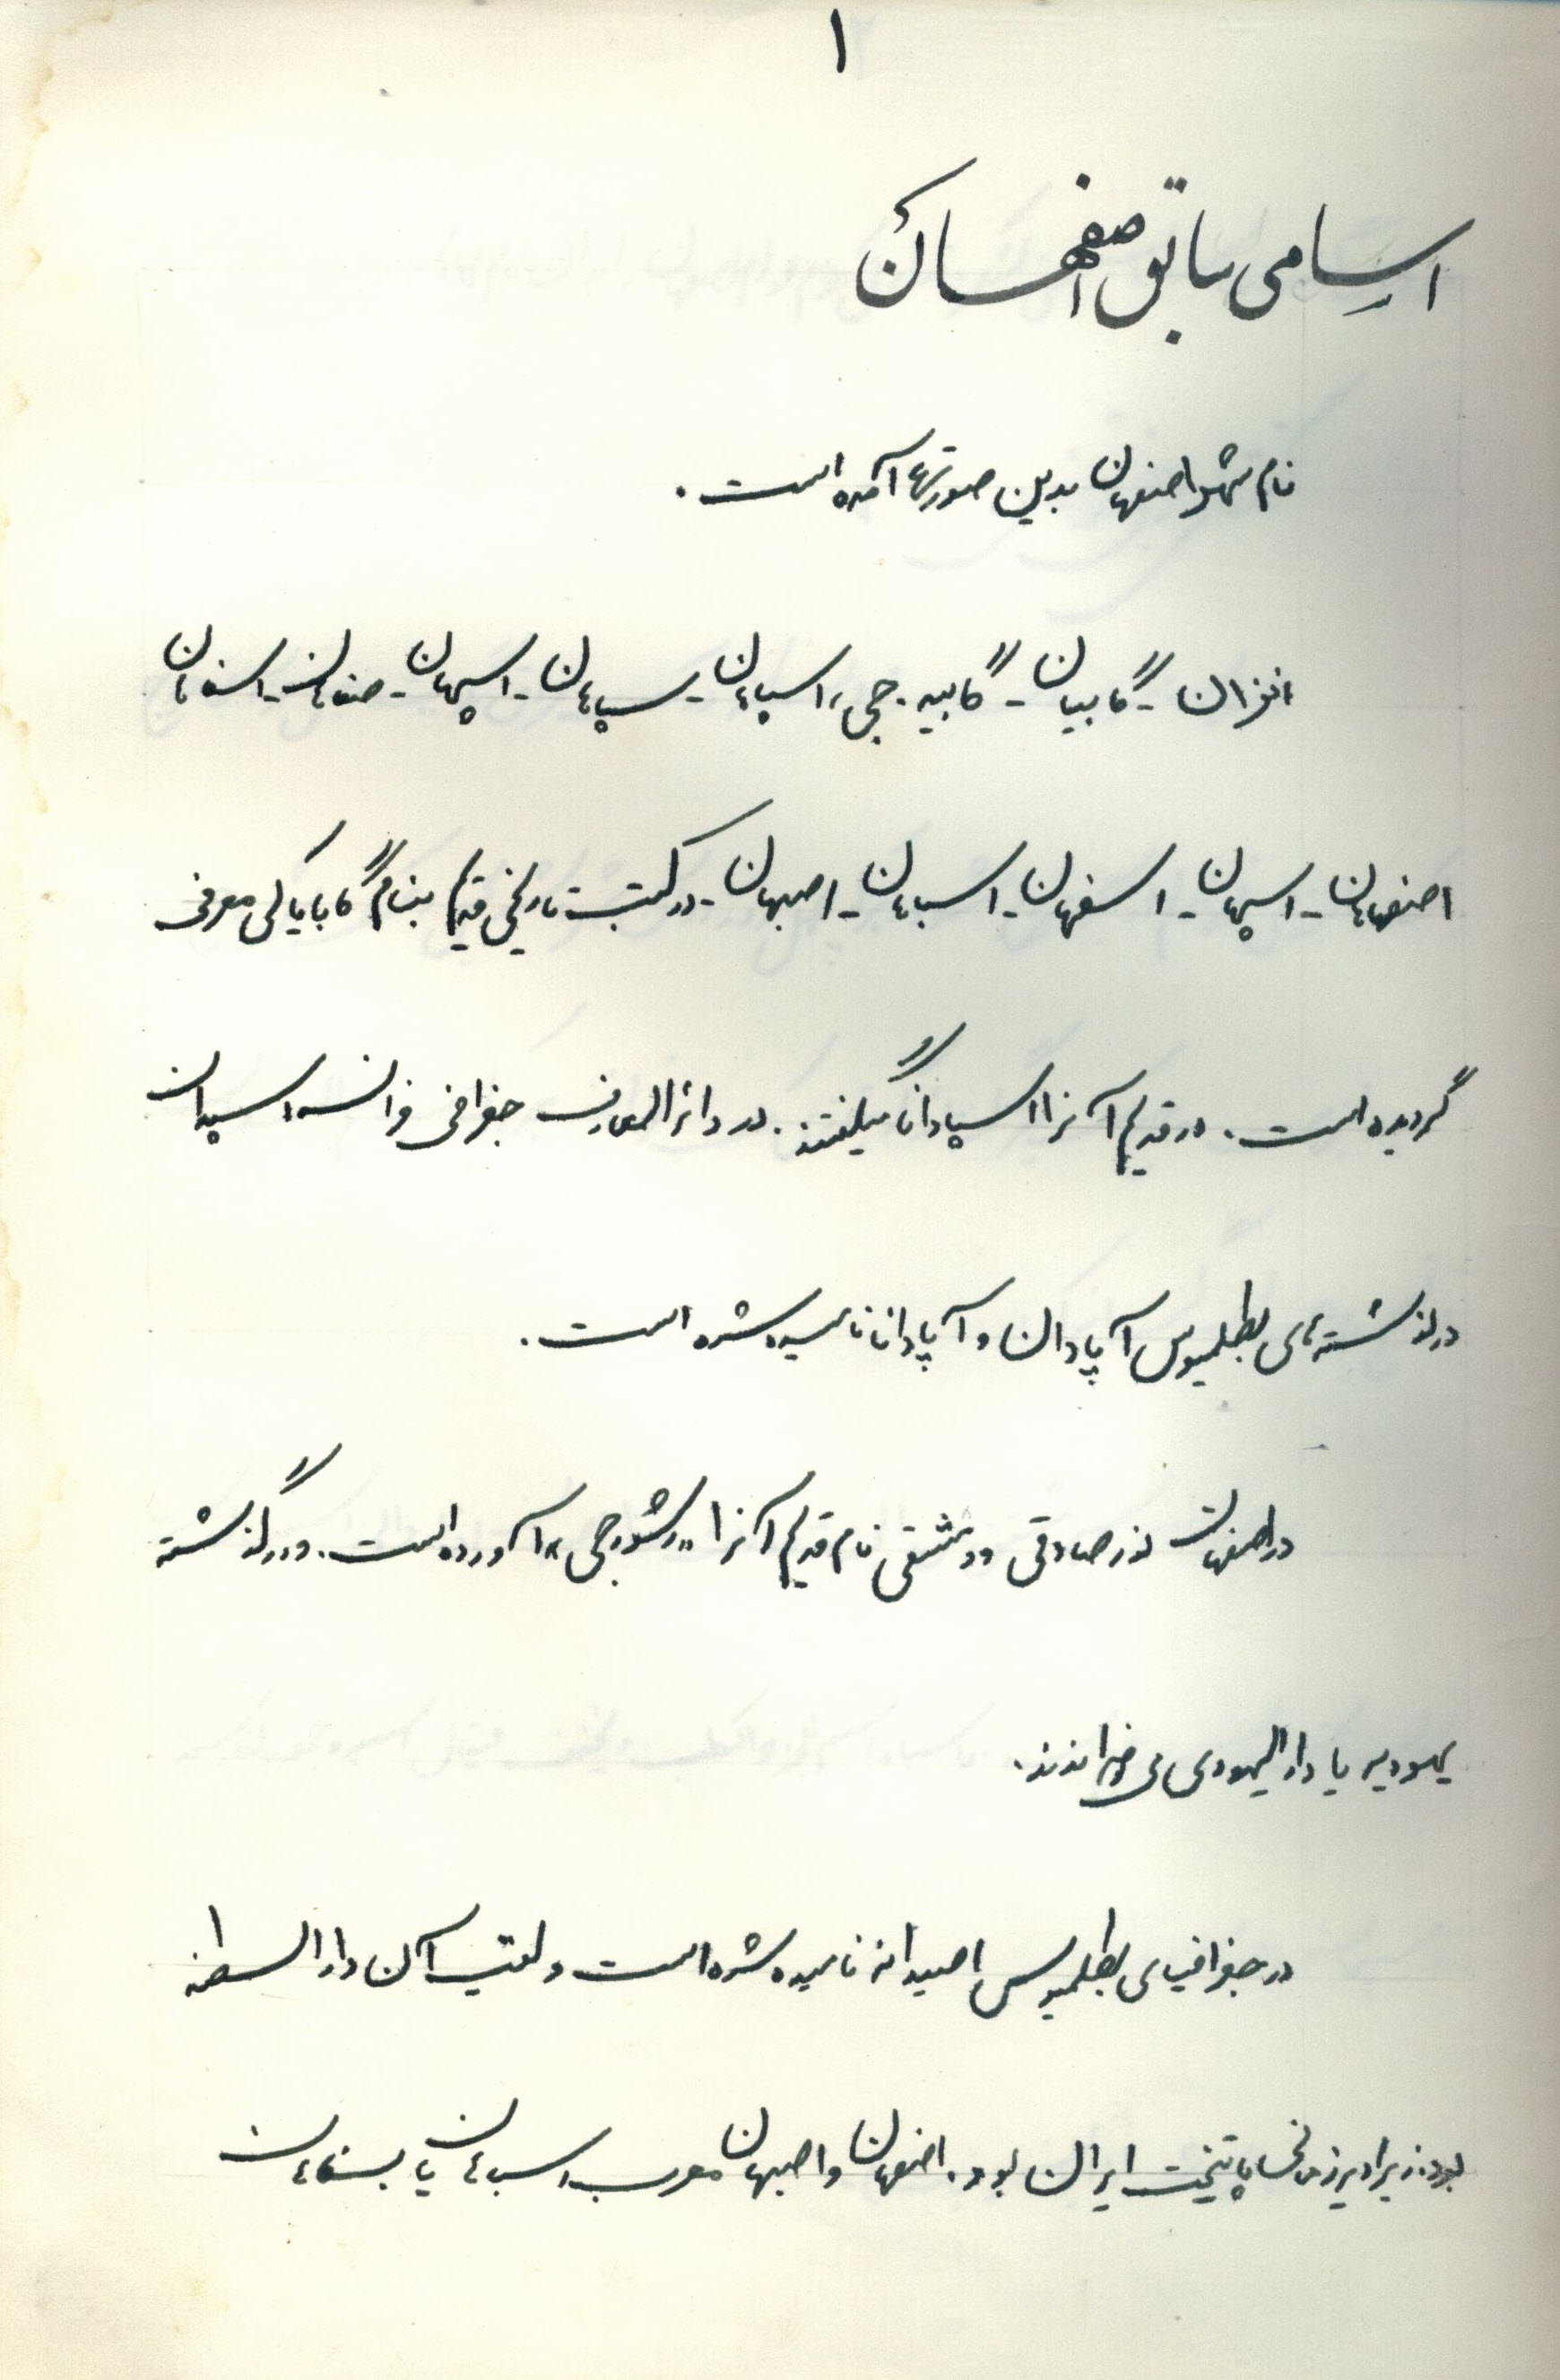 ۱
اسامی سابق اصفهان
نام شهر اصفهان بدین صورتها آمده است.
انزان - گابیان - گابیه. جی، اسپاهان - سپاهان - اسپهان - صفاهان - اسفاهان
اصفهان - اسپهان - اسفهان - اسباهان - اصبهان - در کتب تاریخی قدیم بنام گابا یا کی معرفی
گردیده است. در قدیم آنرا اسپادانا میگفتند. در دائرالمعارف جغرافی فرانسه اسپدان
در نوشته‌های بطلمیوس آپادان و آپادانا نامیده شده است.
در اصفهان نور صادقی و دمشقی نام قدیم آنرا «رشورجی» آورده است. و در گذشته
یهودیه یا دارالیهودی می خواندند.
در جغرافیای بطلمیوس اصپدانه نامیده شده است و لقب آن دارالسلطنه
بود. زیرا دیر زمانی پایتخت ایران بود. اصفهان و اصبهان معرب اسباهان یا